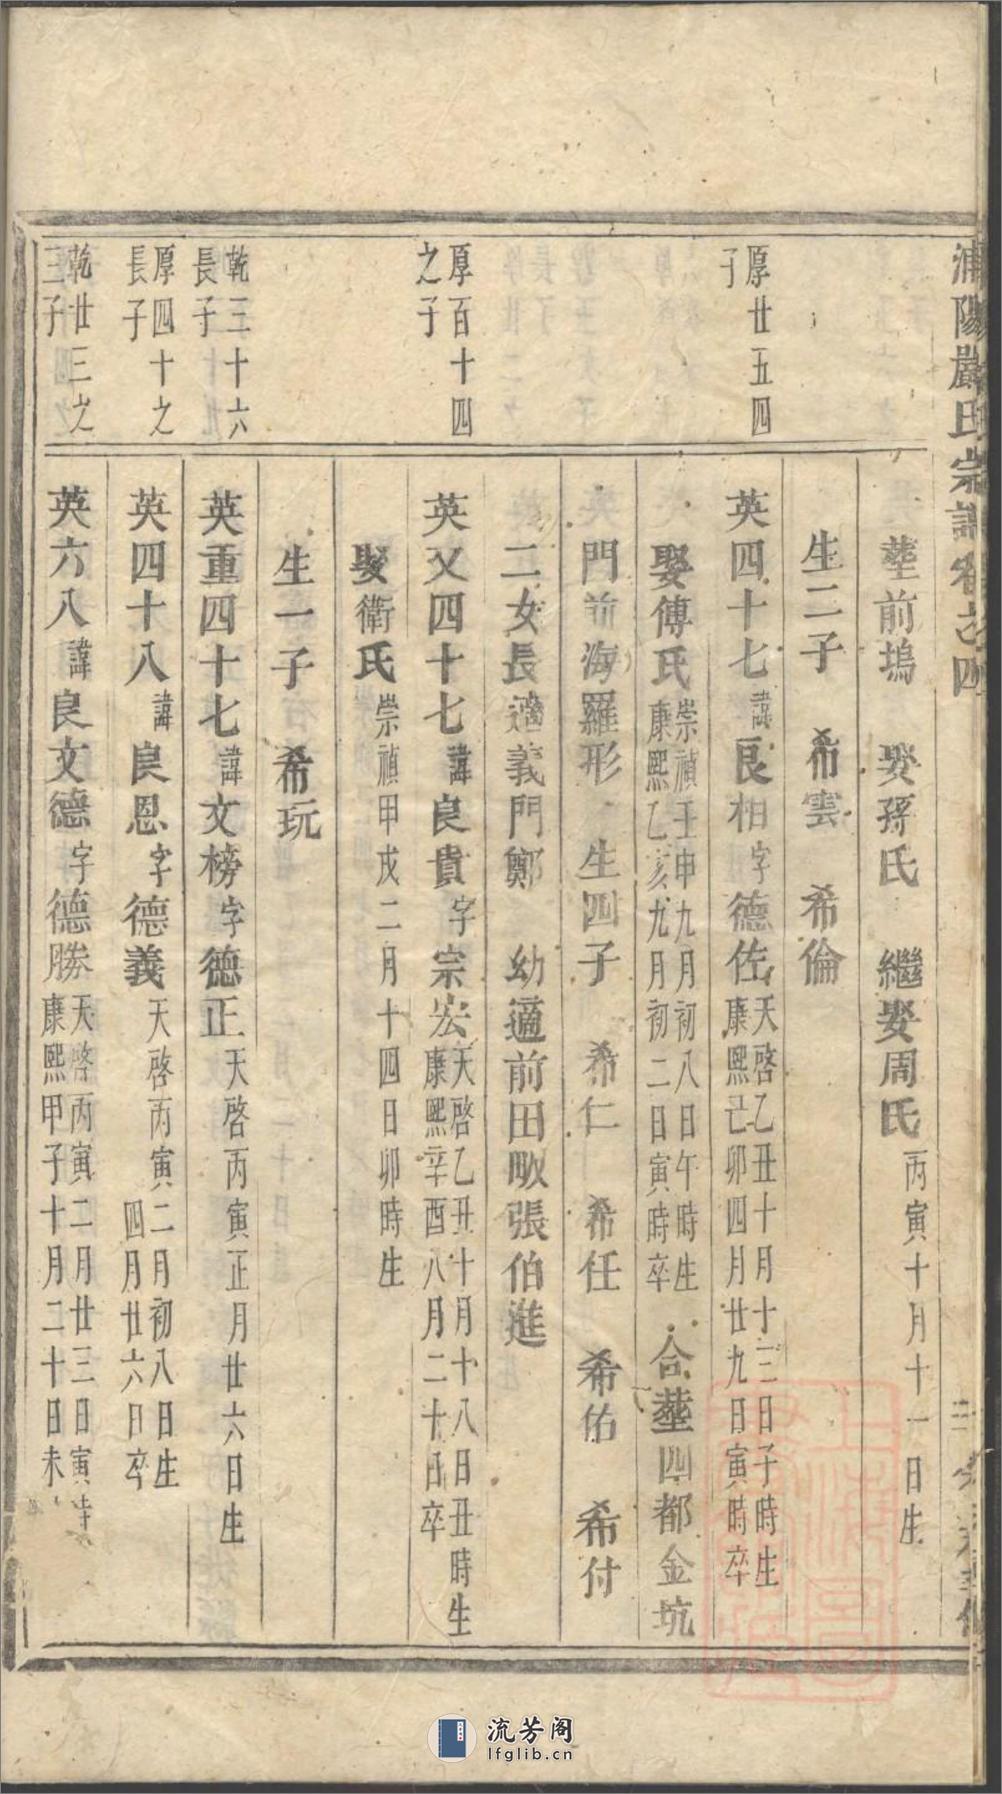 浦陽嚴氏宗譜卷之四
塟前塢　娶孫氏　繼娶周氏丙寅十月十一日生
生二子　希雲　希倫
厚廿五四
子
英四十七諱良相字德佐天啓乙丑十月十三日子時生
康熙己卯四月廿九日寅時卒
娶傅氏崇禎壬申九月初八日午時生
康熙乙亥九月初二日寅時卒　合塟四都金坑
門前海羅形　生四子　希仁　希任　希佑　希付
二女長適義門鄭　幼適前田畈張伯進
厚百十四
之子
英又四十七諱良貴字宗宏天啓乙丑十月十八日丑時生
康熙辛酉八月二十日卒
娶衛氏崇禎甲戌二月十四日卯時生
生一子　希玩
乾三十六
長子
英重四十七諱文榜字德正天啓丙寅正月廿六日生
厚四十之
長子
英四十八諱良恩字德義天啓丙寅二月初八日生
四月廿六日卒
乾廿三之
三子
英六八諱良文德字德勝天啓丙寅二月廿三日寅時
康熙甲子十月二十日未
流芳阁
lfglib.cn